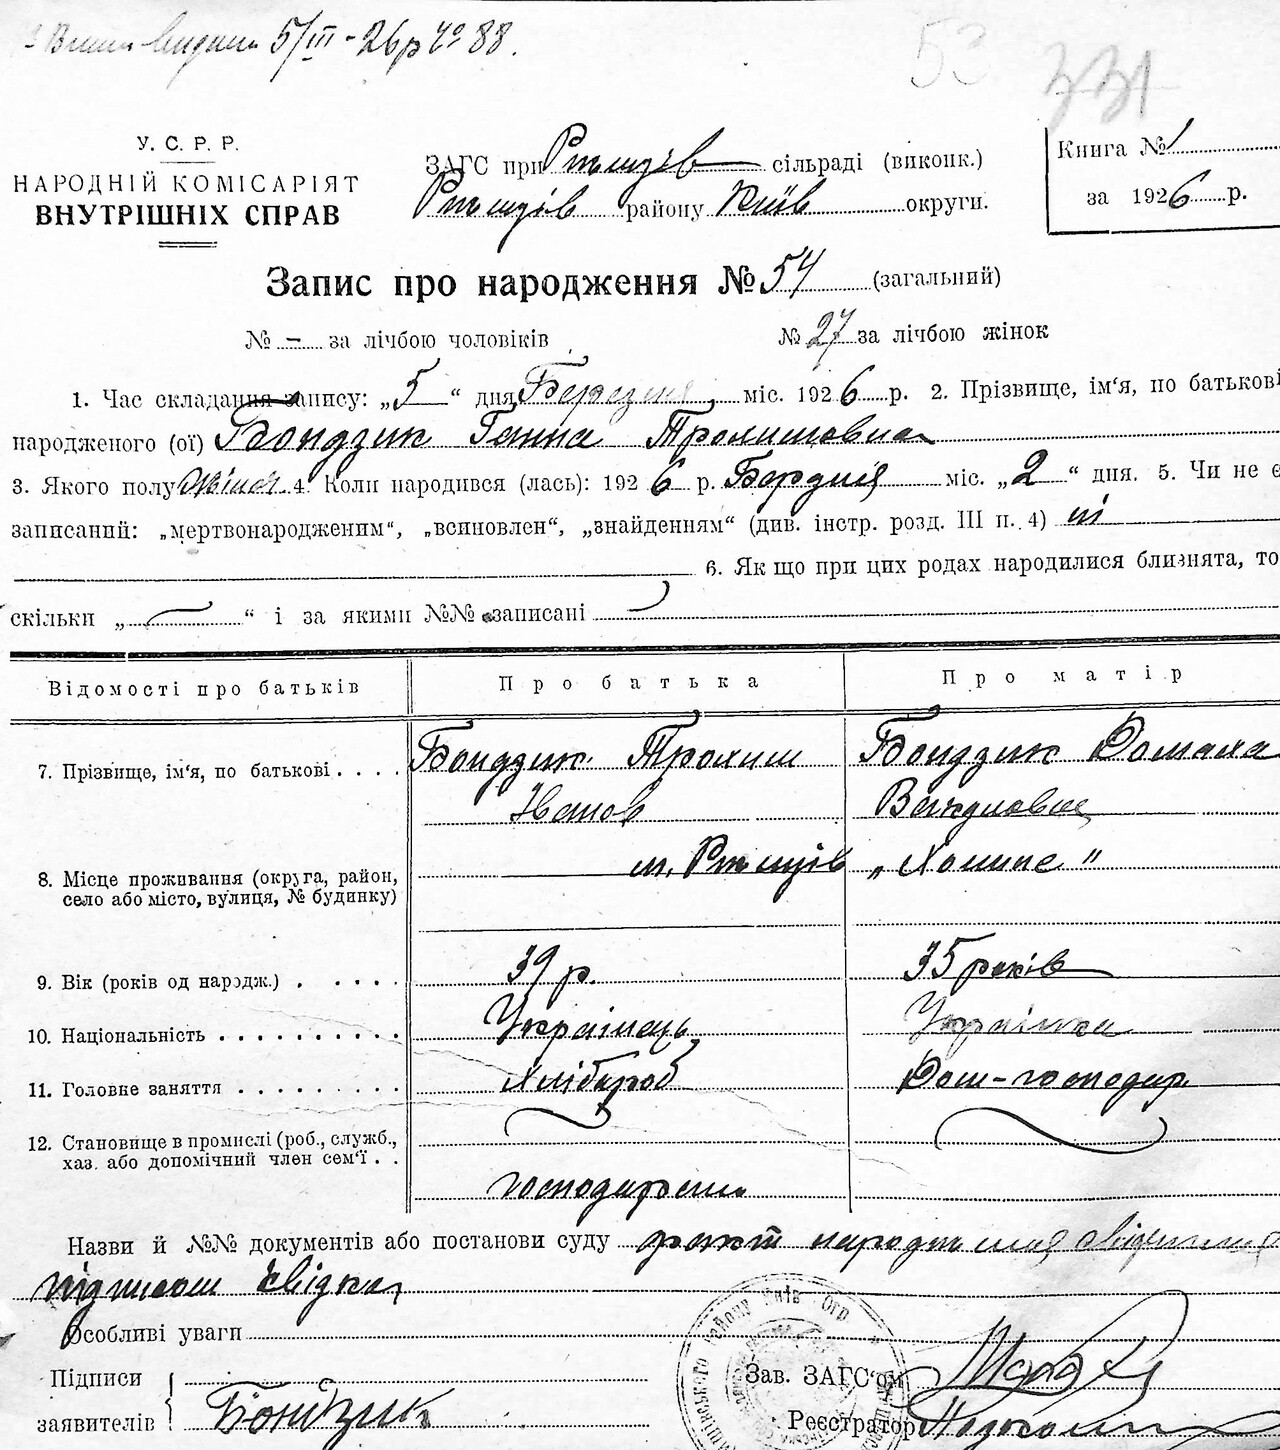 5/III-26р № 88.
53
331
У. С. Р. Р.
НАРОДНІЙ КОМІСАРІЯТ
ВНУТРІШНІХ СПРАВ
ЗАГС при Ржищів сільраді (виконк.)
Ржищів району Київ округи.
Книга № 1
за 1926 р.
Запис про народження № 54 (загальний)
№ – за лічбою чоловіків
№ 27 за лічбою жінок
1. Час складання запису: „5“ дня Березня міс. 1926 р. 2. Прізвище, ім'я, по батькові
народженого (ої) Бондзик Ганна Трохимовна
3. Якого полу жіноч 4. Коли народився (лась): 1926 р. Березня міс. „2“ дня. 5. Чи не є
записаний: „мертвонародженим“, „всиновлен“, „знайденням“ (див. інстр. розд. III п. 4) ні
6. Як що при цих родах народилися близнята, то
скільки „ “ і за якими №№ записані
Відомості про батьків
Про батька
Про матір
7. Прізвище, ім'я, по батькові
Бондзик Трохим
Іванов
Бондзик Домаха
8. Місце проживання (округа, район,
село або місто, вулиця, № будинку)
м. Ржищів
9. Вік (років од народж.)
39 р.
35 років
10. Національність
Українець
Українка
11. Головне заняття
Хлібороб
Дом-господар
12. Становище в промислі (роб., служб.,
хаз. або допомічний член сем'ї
Назви й №№ документів або постанови суду факт народження
підписом свідка
Особливі уваги
Підписи
заявителів
Бондзик
Зав. ЗАГС'ом
Реєстратор